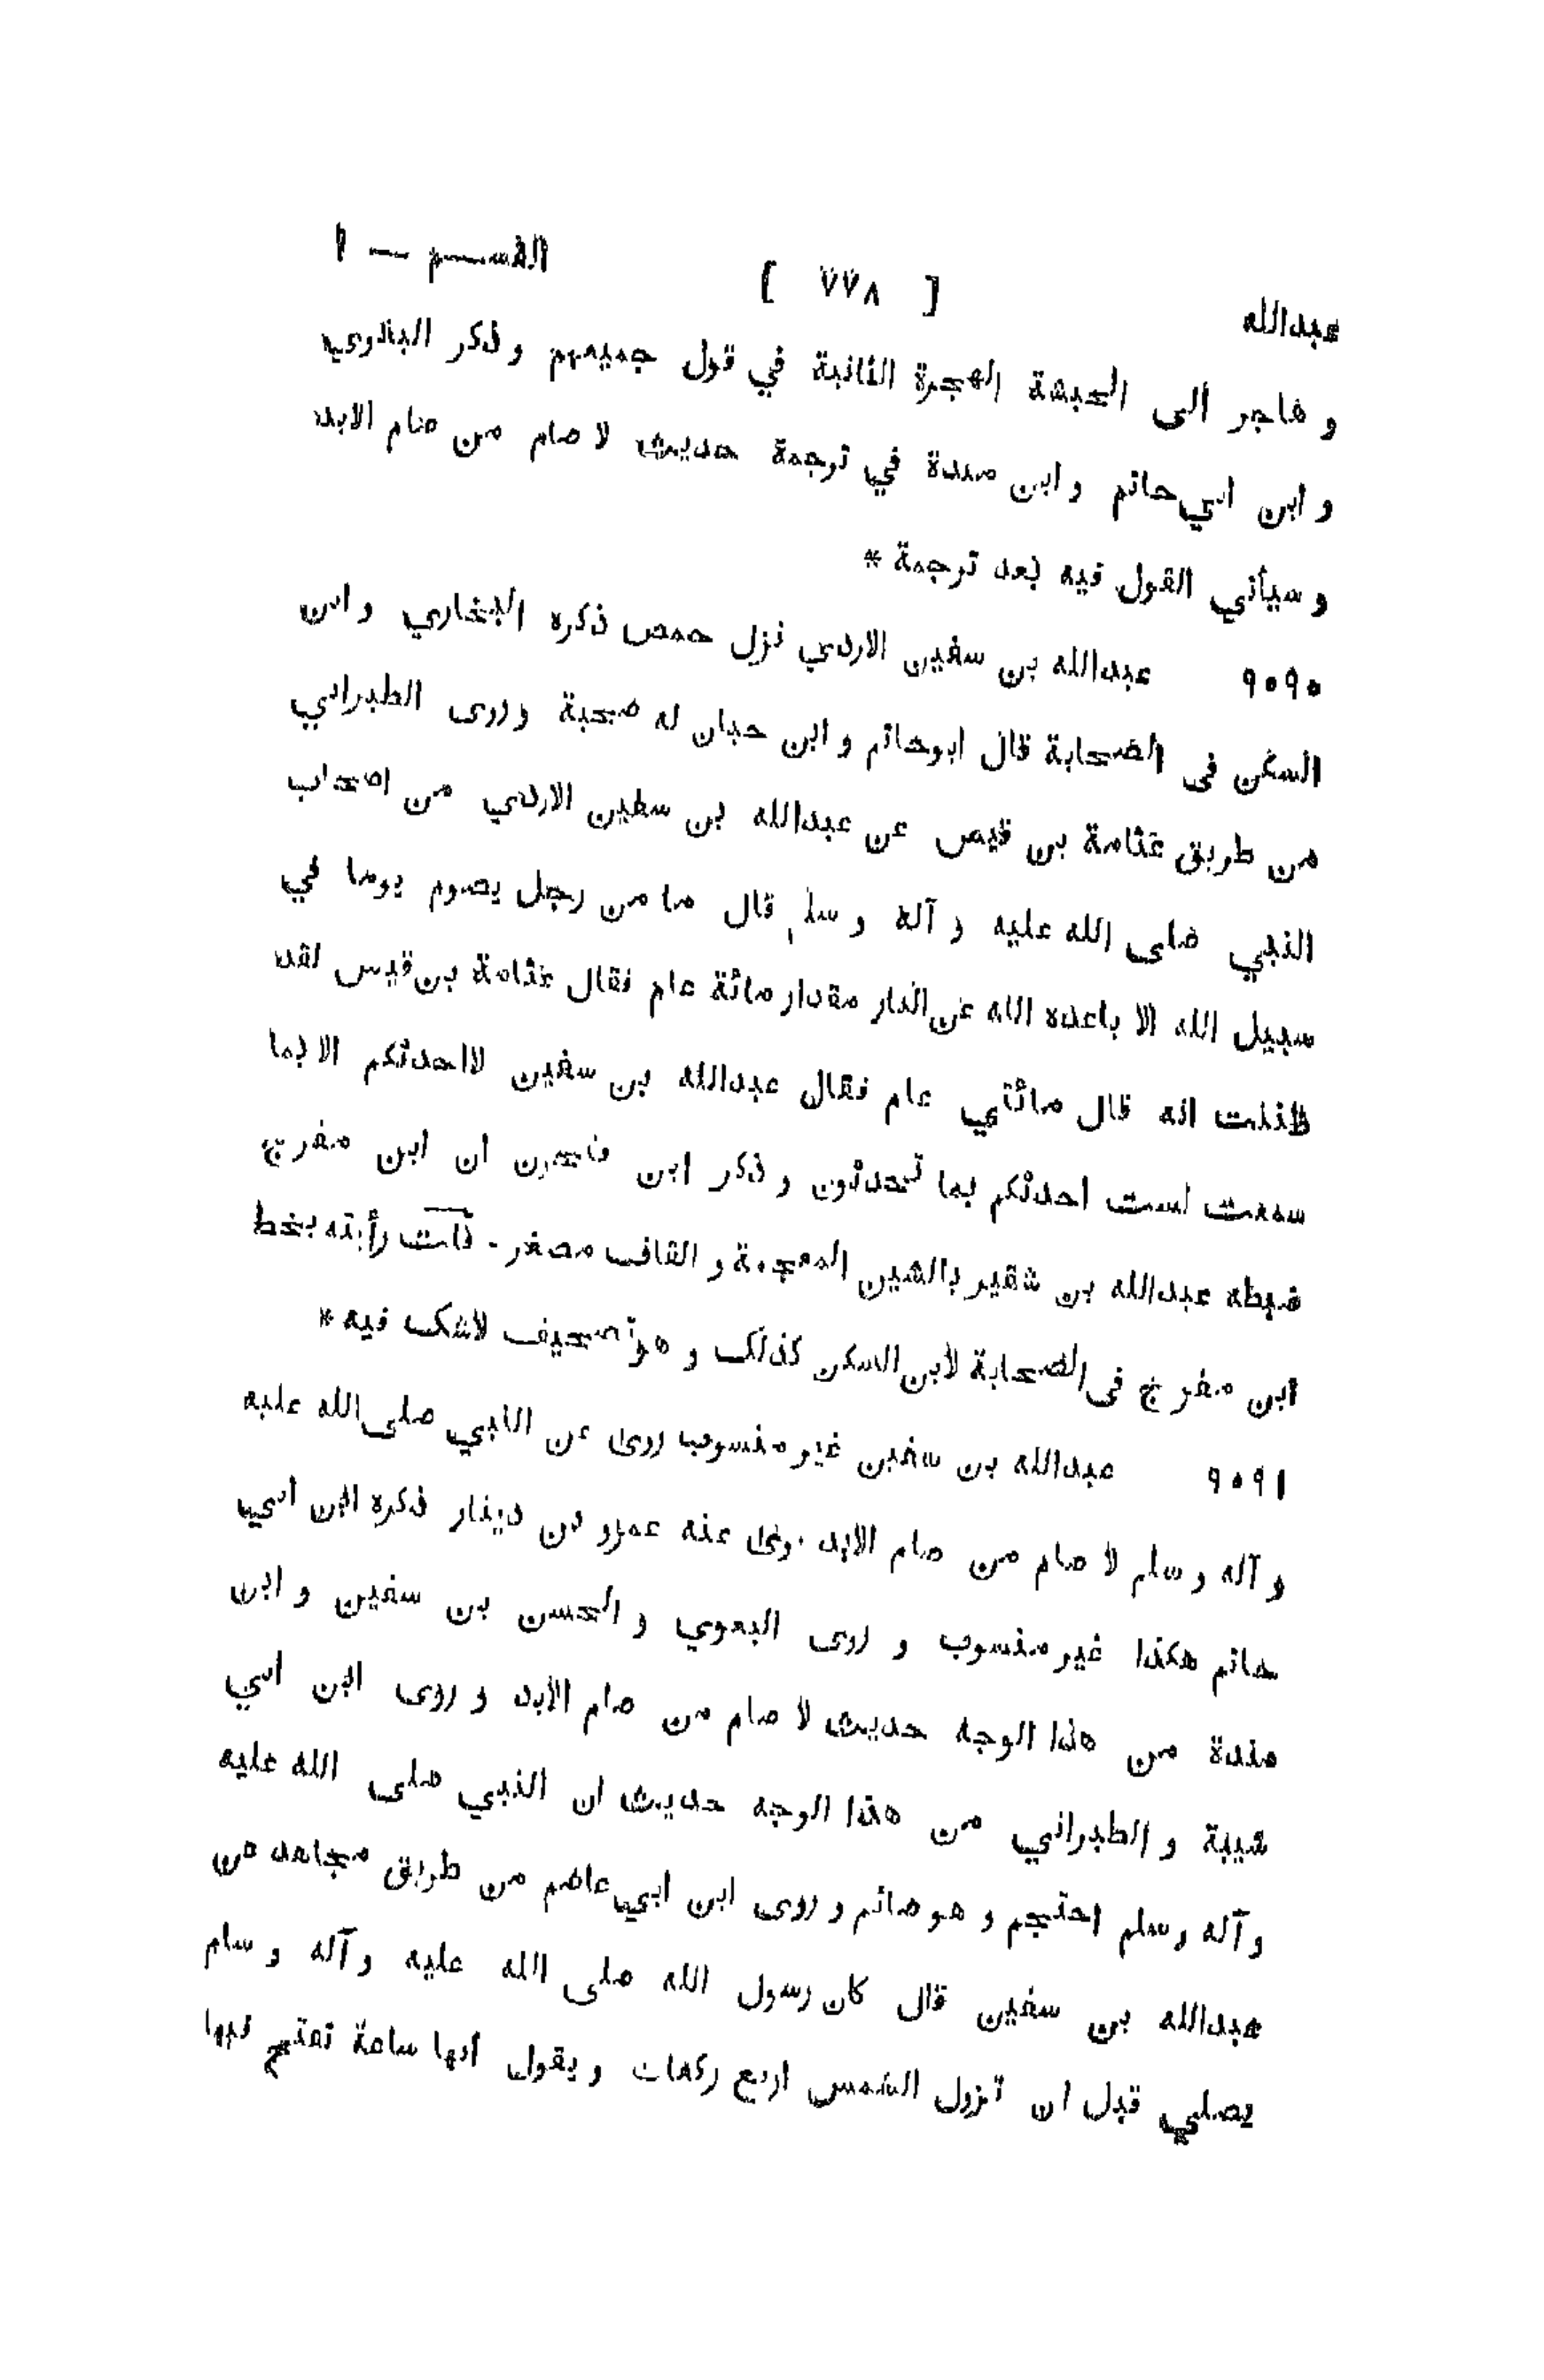 عبدالله [ ٧٧٨ ] القسم — ١
و هاجر الى الحبشة الهجرة الثانية في قول جميعهم و ذكر البغوي
و ابن ابي حاتم و ابن مندة في ترجمة حديث لا صام من صام الابد
و سيأتي القول فيه بعد ترجمة *
٩٠٩٠ عبدالله بن سفين الازدي نزل حمص ذكره البخاري و ابن
السكن فى الصحابة قال ابوحاتم و ابن حبان له صحبة و روى الطبراني
من طريق عثامة بن قيس عن عبدالله بن سفين الازدي من اصحاب
النبي صلى الله عليه و آله و سلم قال ما من رجل يصوم يوما في
سبيل الله الا باعده الله عن النار مقدار مائة عام فقال عثامة بن قيس لقد
ظننت انه قال مائتي عام فقال عبدالله بن سفين لااحدثكم الا بما
سمعت لست احدثكم بما تحدثون و ذكر ابن فتحون ان ابن مفرج
ضبطه عبدالله بن شقير بالشين المعجمة و القاف مصغر - قلت رأيته بخط
ابن مفرج فى الصحابة لابن السكن كذلك و هو تصحيف لاشك فيه *
٩٠٩١ عبدالله بن سفين غير منسوب روى عن النبي صلى الله عليه
و آله و سلم لا صام من صام الابد روى عنه عمرو بن دينار ذكره ابن ابي
حاتم هكذا غير منسوب و روى البغوي و الحسن بن سفين و ابن
مندة من هذا الوجه حديث لا صام من صام الابد و روى ابن ابي
شيبة و الطبراني من هذا الوجه حديث ان النبي صلى الله عليه
و آله و سلم احتجم و هو صائم و روى ابن ابي عاصم من طريق مجاهد عن
عبدالله بن سفين قال كان رسول الله صلى الله عليه و آله و سلم
يصلي قبل ان تزول الشمس اربع ركعات و يقول انها ساعة تفتح فيها